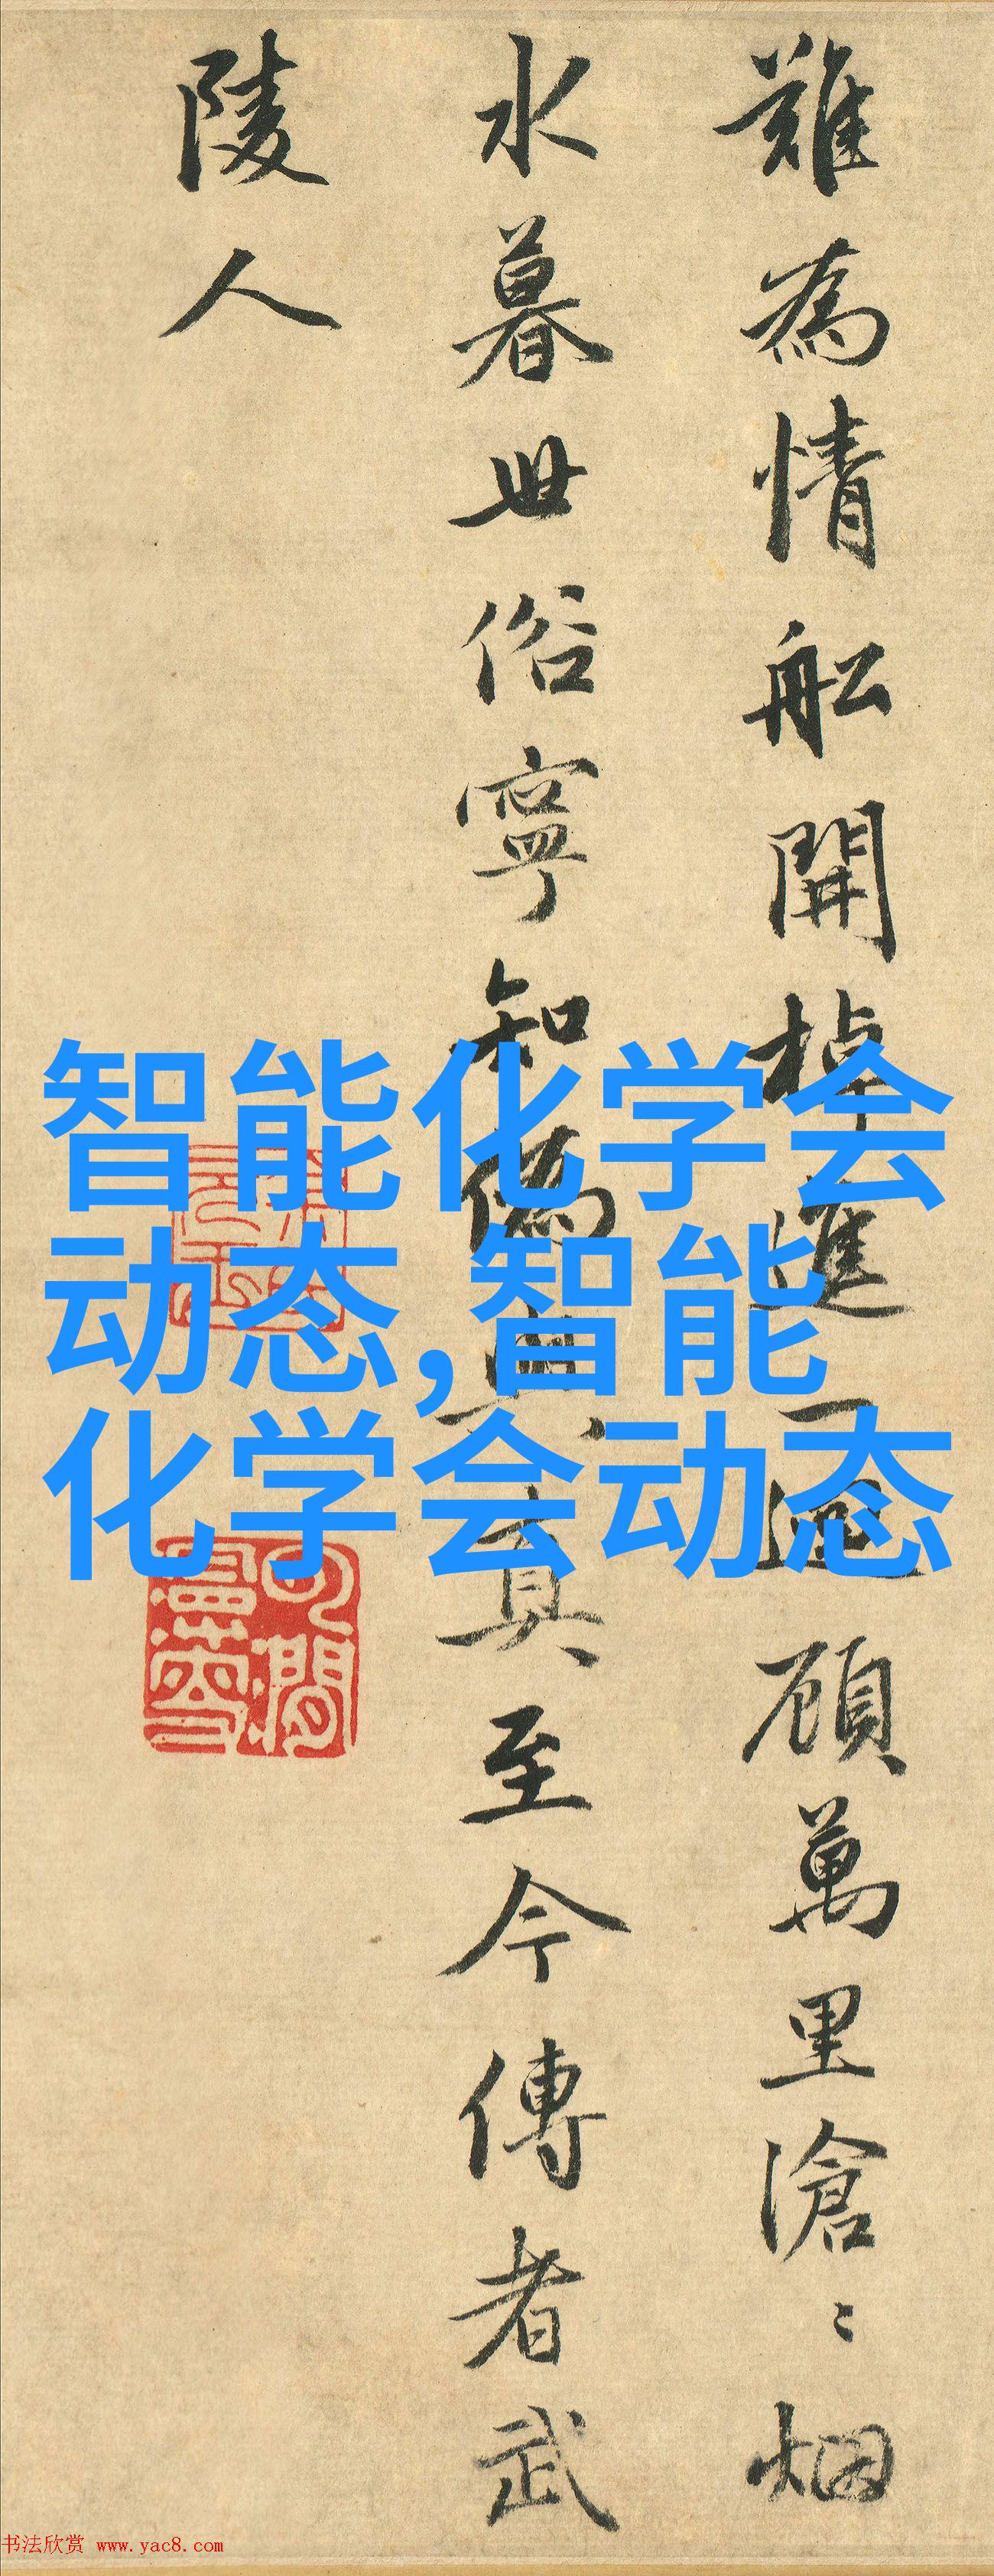 難為情舩開棹進一迴頋萬里滄〻烟
水暮世俗寧知偽與真至今傳者武
陵人
智能化学会
动态,智能
化学会动态
书法欣赏 www.yac8.com